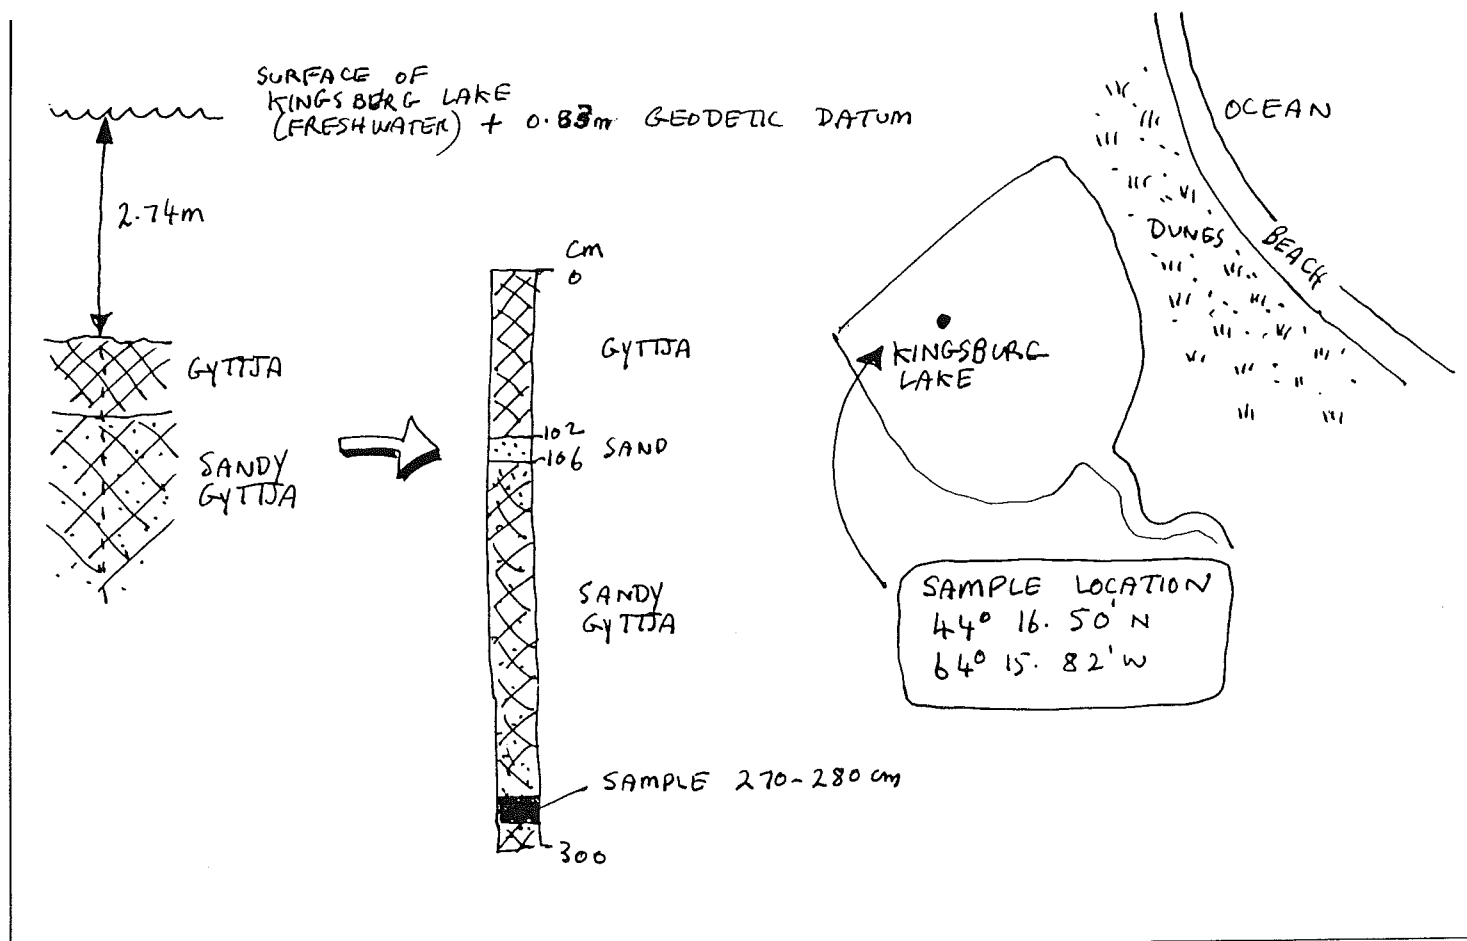 SURFACE OF
KINGSBURG LAKE
(FRESHWATER) + 0.83m GEODETIC DATUM
2.74m
GYTTJA
SANDY
GYTTJA
cm
0
GYTTJA
102
SAND
106
SANDY
GYTTJA
SAMPLE 270-280 cm
300
OCEAN
DUNES
BEACH
KINGSBURG
LAKE
SAMPLE LOCATION
44° 16.50' N
64° 15.82' W